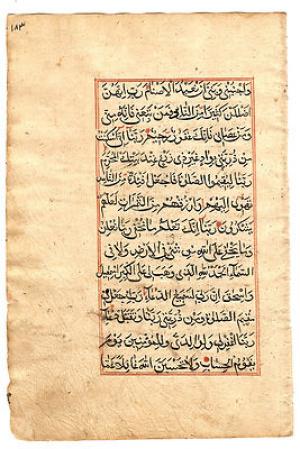 ١٨٣
وَاجْنُبْنِي وَبَنِيَّ اَنْ نَعْبُدَ الْاَصْنَامَ رَبِّ اِنَّهُنَّ
اَضْلَلْنَ كَثِيرًا مِنَ النَّاسِ فَمَنْ تَبِعَنِي فَاِنَّهُ مِنِّي
وَمَنْ عَصَانِي فَاِنَّكَ غَفُورٌ رَحِيمٌ رَبَّنَا اِنِّي اَسْكَنْتُ
مِنْ ذُرِّيَّتِي بِوَادٍ غَيْرِ ذِي زَرْعٍ عِنْدَ بَيْتِكَ الْمُحَرَّمِ
رَبَّنَا لِيُقِيمُوا الصَّلٰوةَ فَاجْعَلْ اَفْئِدَةً مِنَ النَّاسِ
تَهْوِي اِلَيْهِمْ وَارْزُقْهُمْ مِنَ الثَّمَرَاتِ لَعَلَّهُمْ
يَشْكُرُونَ رَبَّنَا اِنَّكَ تَعْلَمُ مَا نُخْفِي وَمَا نُعْلِنُ
وَمَا يَخْفٰى عَلَى اللّٰهِ مِنْ شَيْءٍ فِي الْاَرْضِ وَلَا فِي
السَّمَاءِ اَلْحَمْدُ لِلّٰهِ الَّذِي وَهَبَ لِي عَلَى الْكِبَرِ اِسْمٰعِيلَ
وَاِسْحٰقَ اِنَّ رَبِّي لَسَمِيعُ الدُّعَاءِ رَبِّ اجْعَلْنِي
مُقِيمَ الصَّلٰوةِ وَمِنْ ذُرِّيَّتِي رَبَّنَا وَتَقَبَّلْ دُعَاءِ
رَبَّنَا اغْفِرْ لِي وَلِوَالِدَيَّ وَلِلْمُؤْمِنِينَ يَوْمَ
يَقُومُ الْحِسَابُ وَلَا تَحْسَبَنَّ اللّٰهَ غَافِلًا عَمَّا